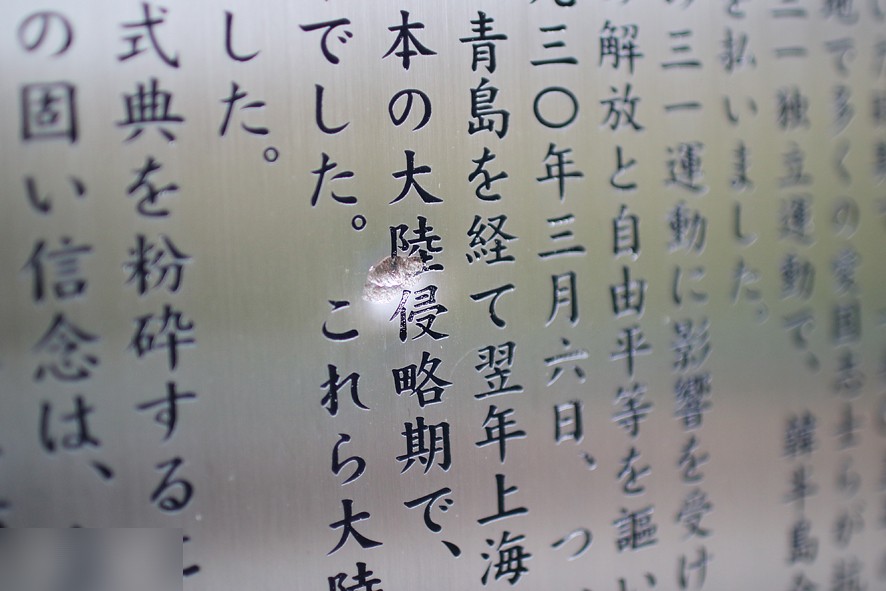 地で多くの愛国志士らが抗
三一独立運動で、韓半島全
を払いました。
の三一運動に影響を受け
の解放と自由平等を謳い
三〇年三月六日、つ
青島を経て翌年上海
本の大陸侵略期で、
でした。これら大陸
した。
式典を粉砕する
の固い信念は、